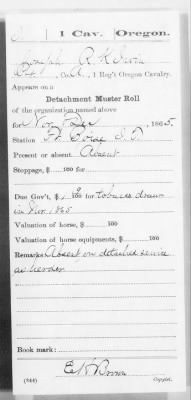 1 Cav. Oregon.
Joseph R.
Co. A, 1 Reg't Oregon Cavalry.
Appears on a
Detachment Muster Roll
of the organization named above
for Nov & Dec, 1865.
Station Ft Boise I.T.
Present or absent Absent
Stoppage, $ 100 for
Due Gov't, $ 100 for tobacco drawn
in Nov. 1865
Valuation of horse, $ 100
Valuation of horse equipments, $ 100
Remarks: Absent on detached service
as herder
Book mark:
(344) Copyist.